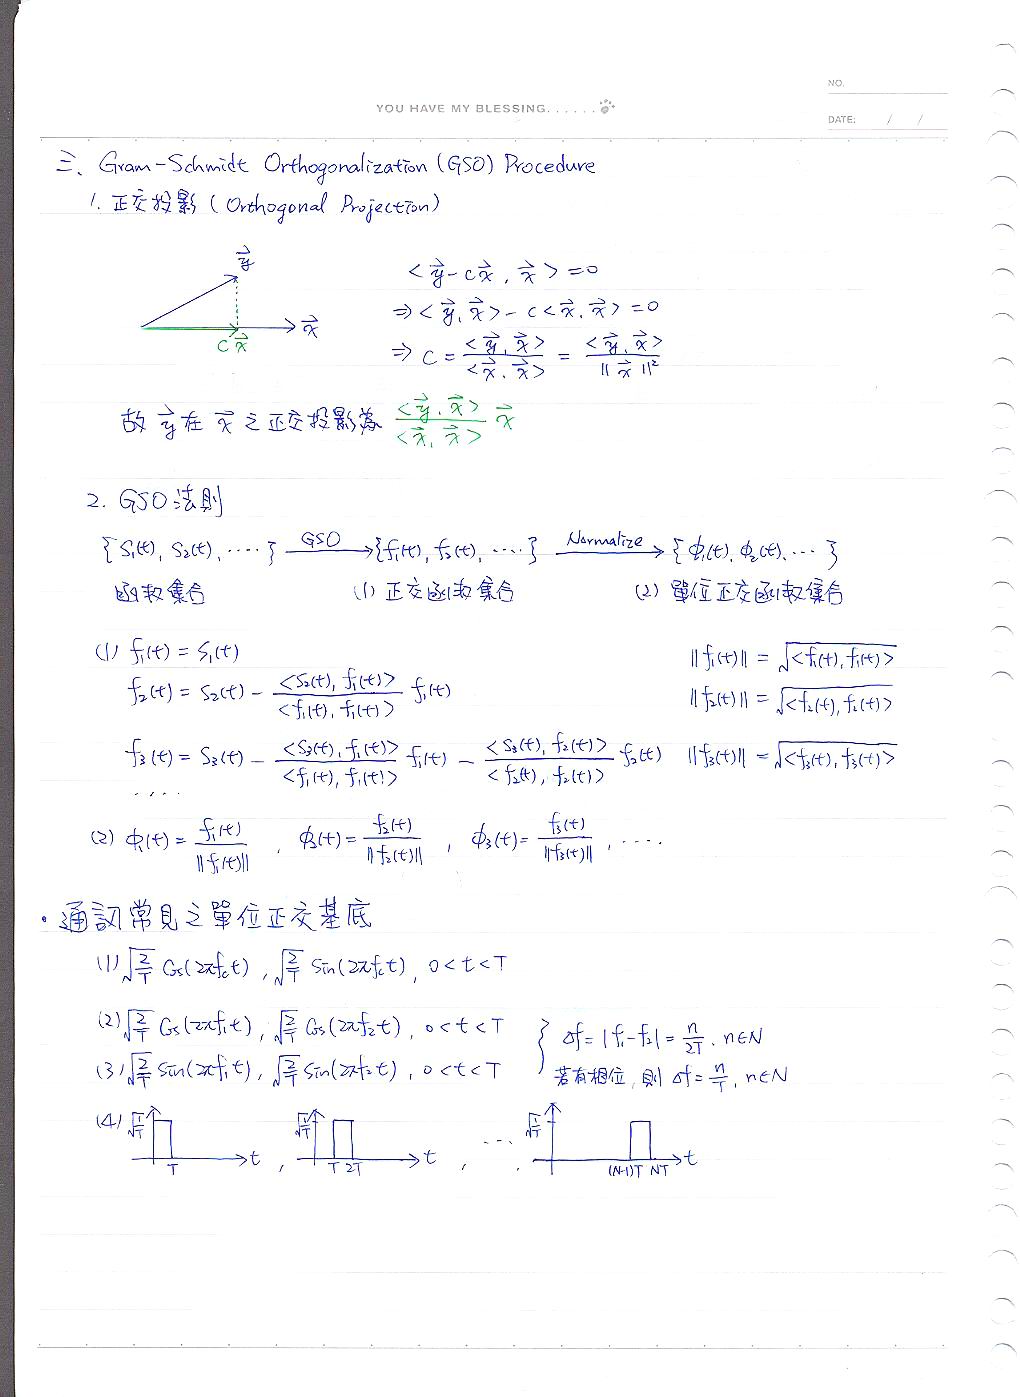 NO.
YOU HAVE MY BLESSING......
DATE: / /
三、Gram-Schmidt Orthogonalization (GSO) Procedure
1. 正交投影 (Orthogonal Projection)
y⃗
x⃗
c x⃗
< y⃗ - c x⃗ , x⃗ > = 0
⇒ < y⃗ , x⃗ > - c < x⃗ , x⃗ > = 0
⇒ c = < y⃗ , x⃗ > / < x⃗ , x⃗ > = < y⃗ , x⃗ > / || x⃗ ||²
故 y⃗ 在 x⃗ 之正交投影為 < y⃗ , x⃗ > / < x⃗ , x⃗ > x⃗
2. GSO 法則
{ S₁(t), S₂(t), ···· } —GSO→ { f₁(t), f₂(t), ···· } —Normalize→ { ϕ₁(t), ϕ₂(t), ··· }
函數集合 (1) 正交函數集合 (2) 單位正交函數集合
(1) f₁(t) = S₁(t) || f₁(t) || = √< f₁(t), f₁(t) >
f₂(t) = S₂(t) - < S₂(t), f₁(t) > / < f₁(t), f₁(t) > f₁(t) || f₂(t) || = √< f₂(t), f₂(t) >
f₃(t) = S₃(t) - < S₃(t), f₁(t) > / < f₁(t), f₁(t) > f₁(t) - < S₃(t), f₂(t) > / < f₂(t), f₂(t) > f₂(t) || f₃(t) || = √< f₃(t), f₃(t) >
····
(2) ϕ₁(t) = f₁(t) / || f₁(t) || , ϕ₂(t) = f₂(t) / || f₂(t) || , ϕ₃(t) = f₃(t) / || f₃(t) || , ····
· 通訊常見之單位正交基底
(1) √(2/T) Cos(2πf_c t) , √(2/T) Sin(2πf_c t) , 0 < t < T
(2) √(2/T) Cos(2πf₁t) , √(2/T) Cos(2πf₂t) , 0 < t < T } Δf = | f₁ - f₂ | = n/2T , n∈N
(3) √(2/T) Sin(2πf₁t) , √(2/T) Sin(2πf₂t) , 0 < t < T 若有相位, 則 Δf = n/T , n∈N
(4) √(1/T) T t , √(1/T) T 2T t , ··· , √(1/T) (N-1)T NT t